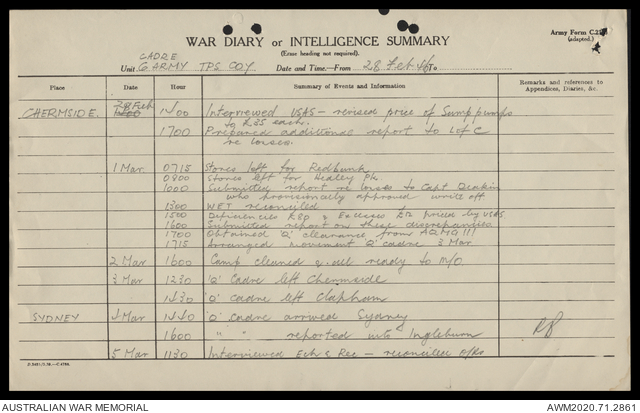 Army Form C.2118
(adapted.)
WAR DIARY or INTELLIGENCE SUMMARY
(Erase heading not required).
CADRE
Unit G ARMY TPS COY. Date and Time—From 28 Feb 46 To
Place Date Hour Summary of Events and Information Remarks and references to Appendices, Diaries, &c.
CHERMSIDE. 28 Feb 1400 Interviewed USAS - revised price of Sump pumps
to £35 each.
1700 Prepared additional report to L of C
re losses.
1 Mar. 0715 Stores left for Redbank
0800 Stores left for Healey Pk.
1000 Submitted report re losses to Capt Deakin
who provisionally approved write off
1300 WET reconciled
1500 Deficiencies & Excesses priced by USAS.
1600 Submitted report on these discrepancies
1700 Obtained 'Q' clearance from AQMG !!!
1715 Arranged movement 'Q' cadre 3 Mar
2 Mar 1600 Camp cleaned & all ready to m/o
3 Mar 1230 'Q' Cadre left Chermside
1430 'Q' cadre left Clapham
SYDNEY 4 Mar 1440 'Q' cadre arrived Sydney
1600 " " reported into Ingleburn
5 Mar 1130 Interviewed Ech & Rec - reconciled O/Rs
AUSTRALIAN WAR MEMORIAL AWM2020.71.2861